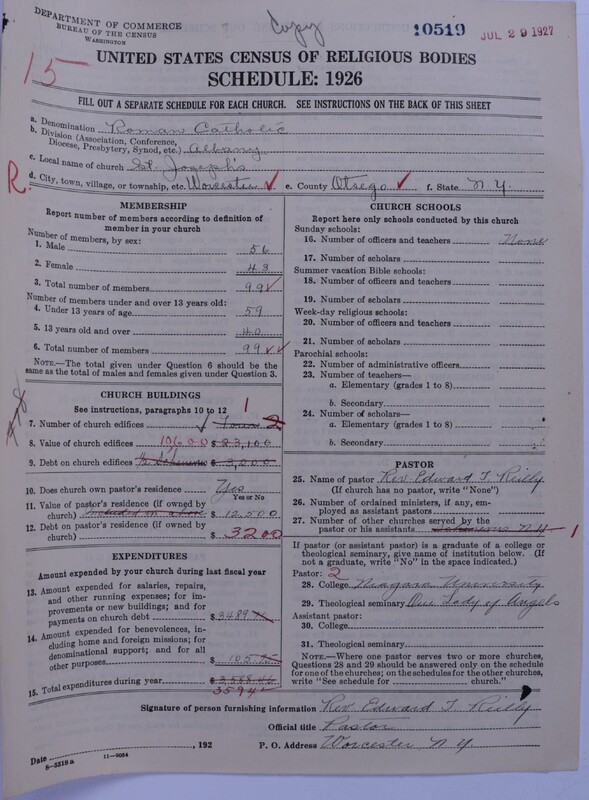 DEPARTMENT OF COMMERCE
BUREAU OF THE CENSUS
WASHINGTON
Copy
10519
JUL 29 1927
15
UNITED STATES CENSUS OF RELIGIOUS BODIES
SCHEDULE: 1926
FILL OUT A SEPARATE SCHEDULE FOR EACH CHURCH. SEE INSTRUCTIONS ON THE BACK OF THIS SHEET
a. Denomination Roman Catholic
b. Division (Association, Conference,
Diocese, Presbytery, Synod, etc.) Albany
c. Local name of church St. Joseph's
R. d. City, town, village, or township, etc. Worcester ✓ e. County Otsego ✓ f. State N.Y.
MEMBERSHIP
Report number of members according to definition of
member in your church
Number of members, by sex:
1. Male 56
2. Female 43
3. Total number of members 99 ✓
Number of members under and over 13 years old:
4. Under 13 years of age 59
5. 13 years old and over 40
6. Total number of members 99 ✓✓
NOTE.—The total given under Question 6 should be the
same as the total of males and females given under Question 3.
CHURCH BUILDINGS
See instructions, paragraphs 10 to 12
1
7. Number of church edifices ✓ 2
8. Value of church edifices 10600 $23,100
9. Debt on church edifices $3,000
10. Does church own pastor's residence Yes
Yes or No
11. Value of pastor's residence (if owned by
church) $12,500
12. Debt on pastor's residence (if owned by
church) $3200
EXPENDITURES
Amount expended by your church during last fiscal year
13. Amount expended for salaries, repairs,
and other running expenses; for im-
provements or new buildings; and for
payments on church debt $3489
14. Amount expended for benevolences, in-
cluding home and foreign missions; for
denominational support; and for all
other purposes 105
15. Total expenditures during year $3,588.46
3594
CHURCH SCHOOLS
Report here only schools conducted by this church
Sunday schools:
16. Number of officers and teachers None
17. Number of scholars
Summer vacation Bible schools:
18. Number of officers and teachers
19. Number of scholars
Week-day religious schools:
20. Number of officers and teachers
21. Number of scholars
Parochial schools:
22. Number of administrative officers
23. Number of teachers—
a. Elementary (grades 1 to 8)
b. Secondary
24. Number of scholars—
a. Elementary (grades 1 to 8)
b. Secondary
PASTOR
25. Name of pastor Rev. Edward T. Reilly
(If church has no pastor, write "None")
26. Number of ordained ministers, if any, em-
ployed as assistant pastors
27. Number of other churches served by the
pastor or his assistants 1
If pastor (or assistant pastor) is a graduate of a college or
theological seminary, give name of institution below. (If
not a graduate, write "No" in the space indicated.)
Pastor: 2
28. College Niagara University
29. Theological seminary Our Lady of Angels
Assistant pastor:
30. College
31. Theological seminary
NOTE.—Where one pastor serves two or more churches,
Questions 28 and 29 should be answered only on the schedule
for one of the churches; on the schedules for the other churches,
write "See schedule for church."
Signature of person furnishing information Rev. Edward T. Reilly
Official title Pastor
Date , 192 P. O. Address Worcester N.Y.
8-5318a 11-9054